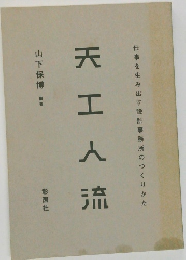 仕事を生み出す設計事務所のつくりかた
天工人流
山下保博 編著
彰国社